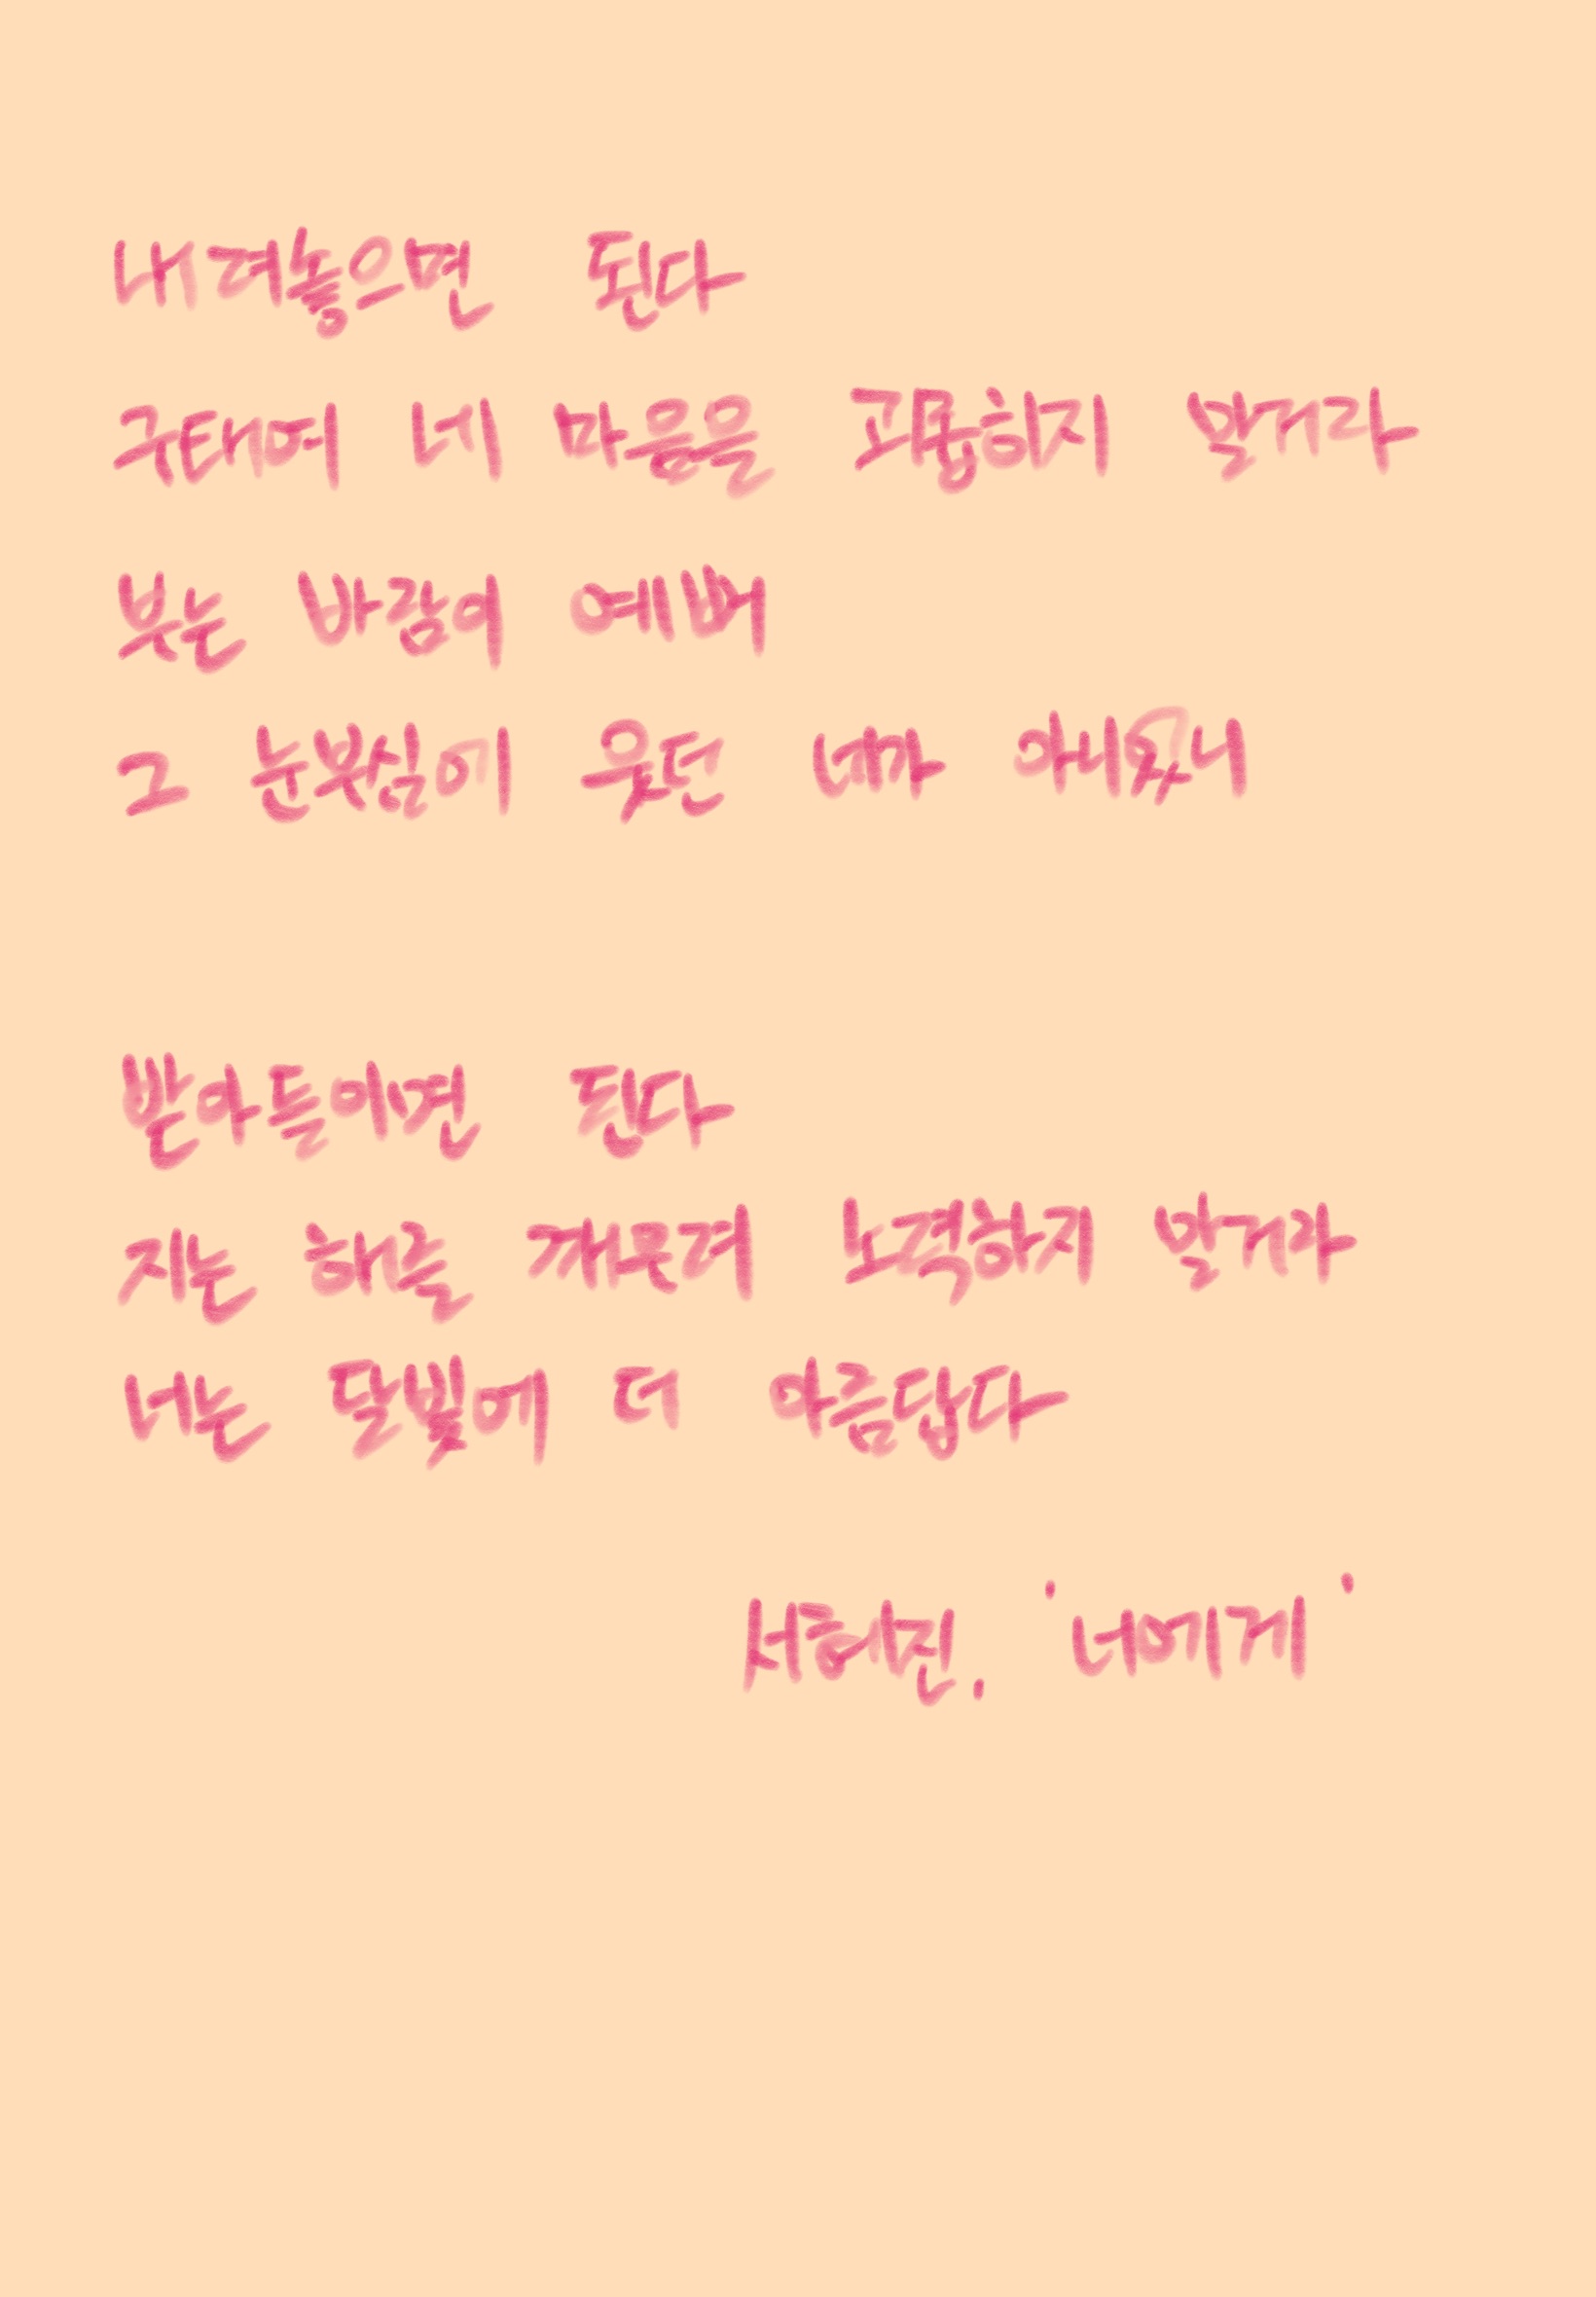 내려놓으면 된다
구태여 네 마음을 괴롭히지 말거라
부는 바람이 예뻐
그 눈부심에 웃던 네가 아니었니
받아들이면 된다
지는 해를 깨우려 노력하지 말거라
너는 달빛에 더 아름답다
서혜진. '너에게'